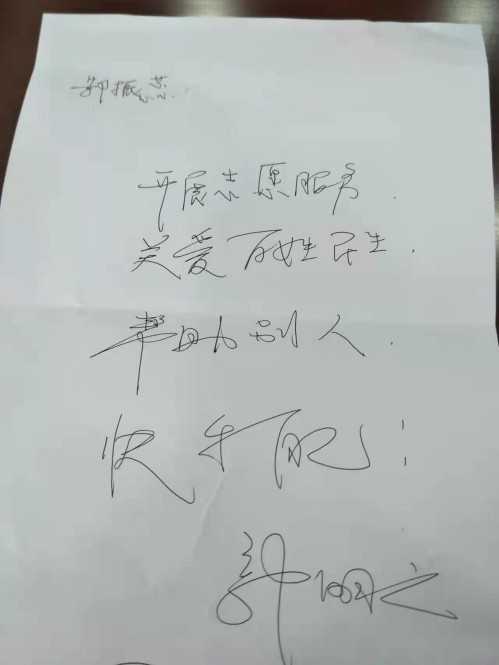 开展志愿服务.
关爱百姓民生.
帮助别人.
快乐自己!
郭明义